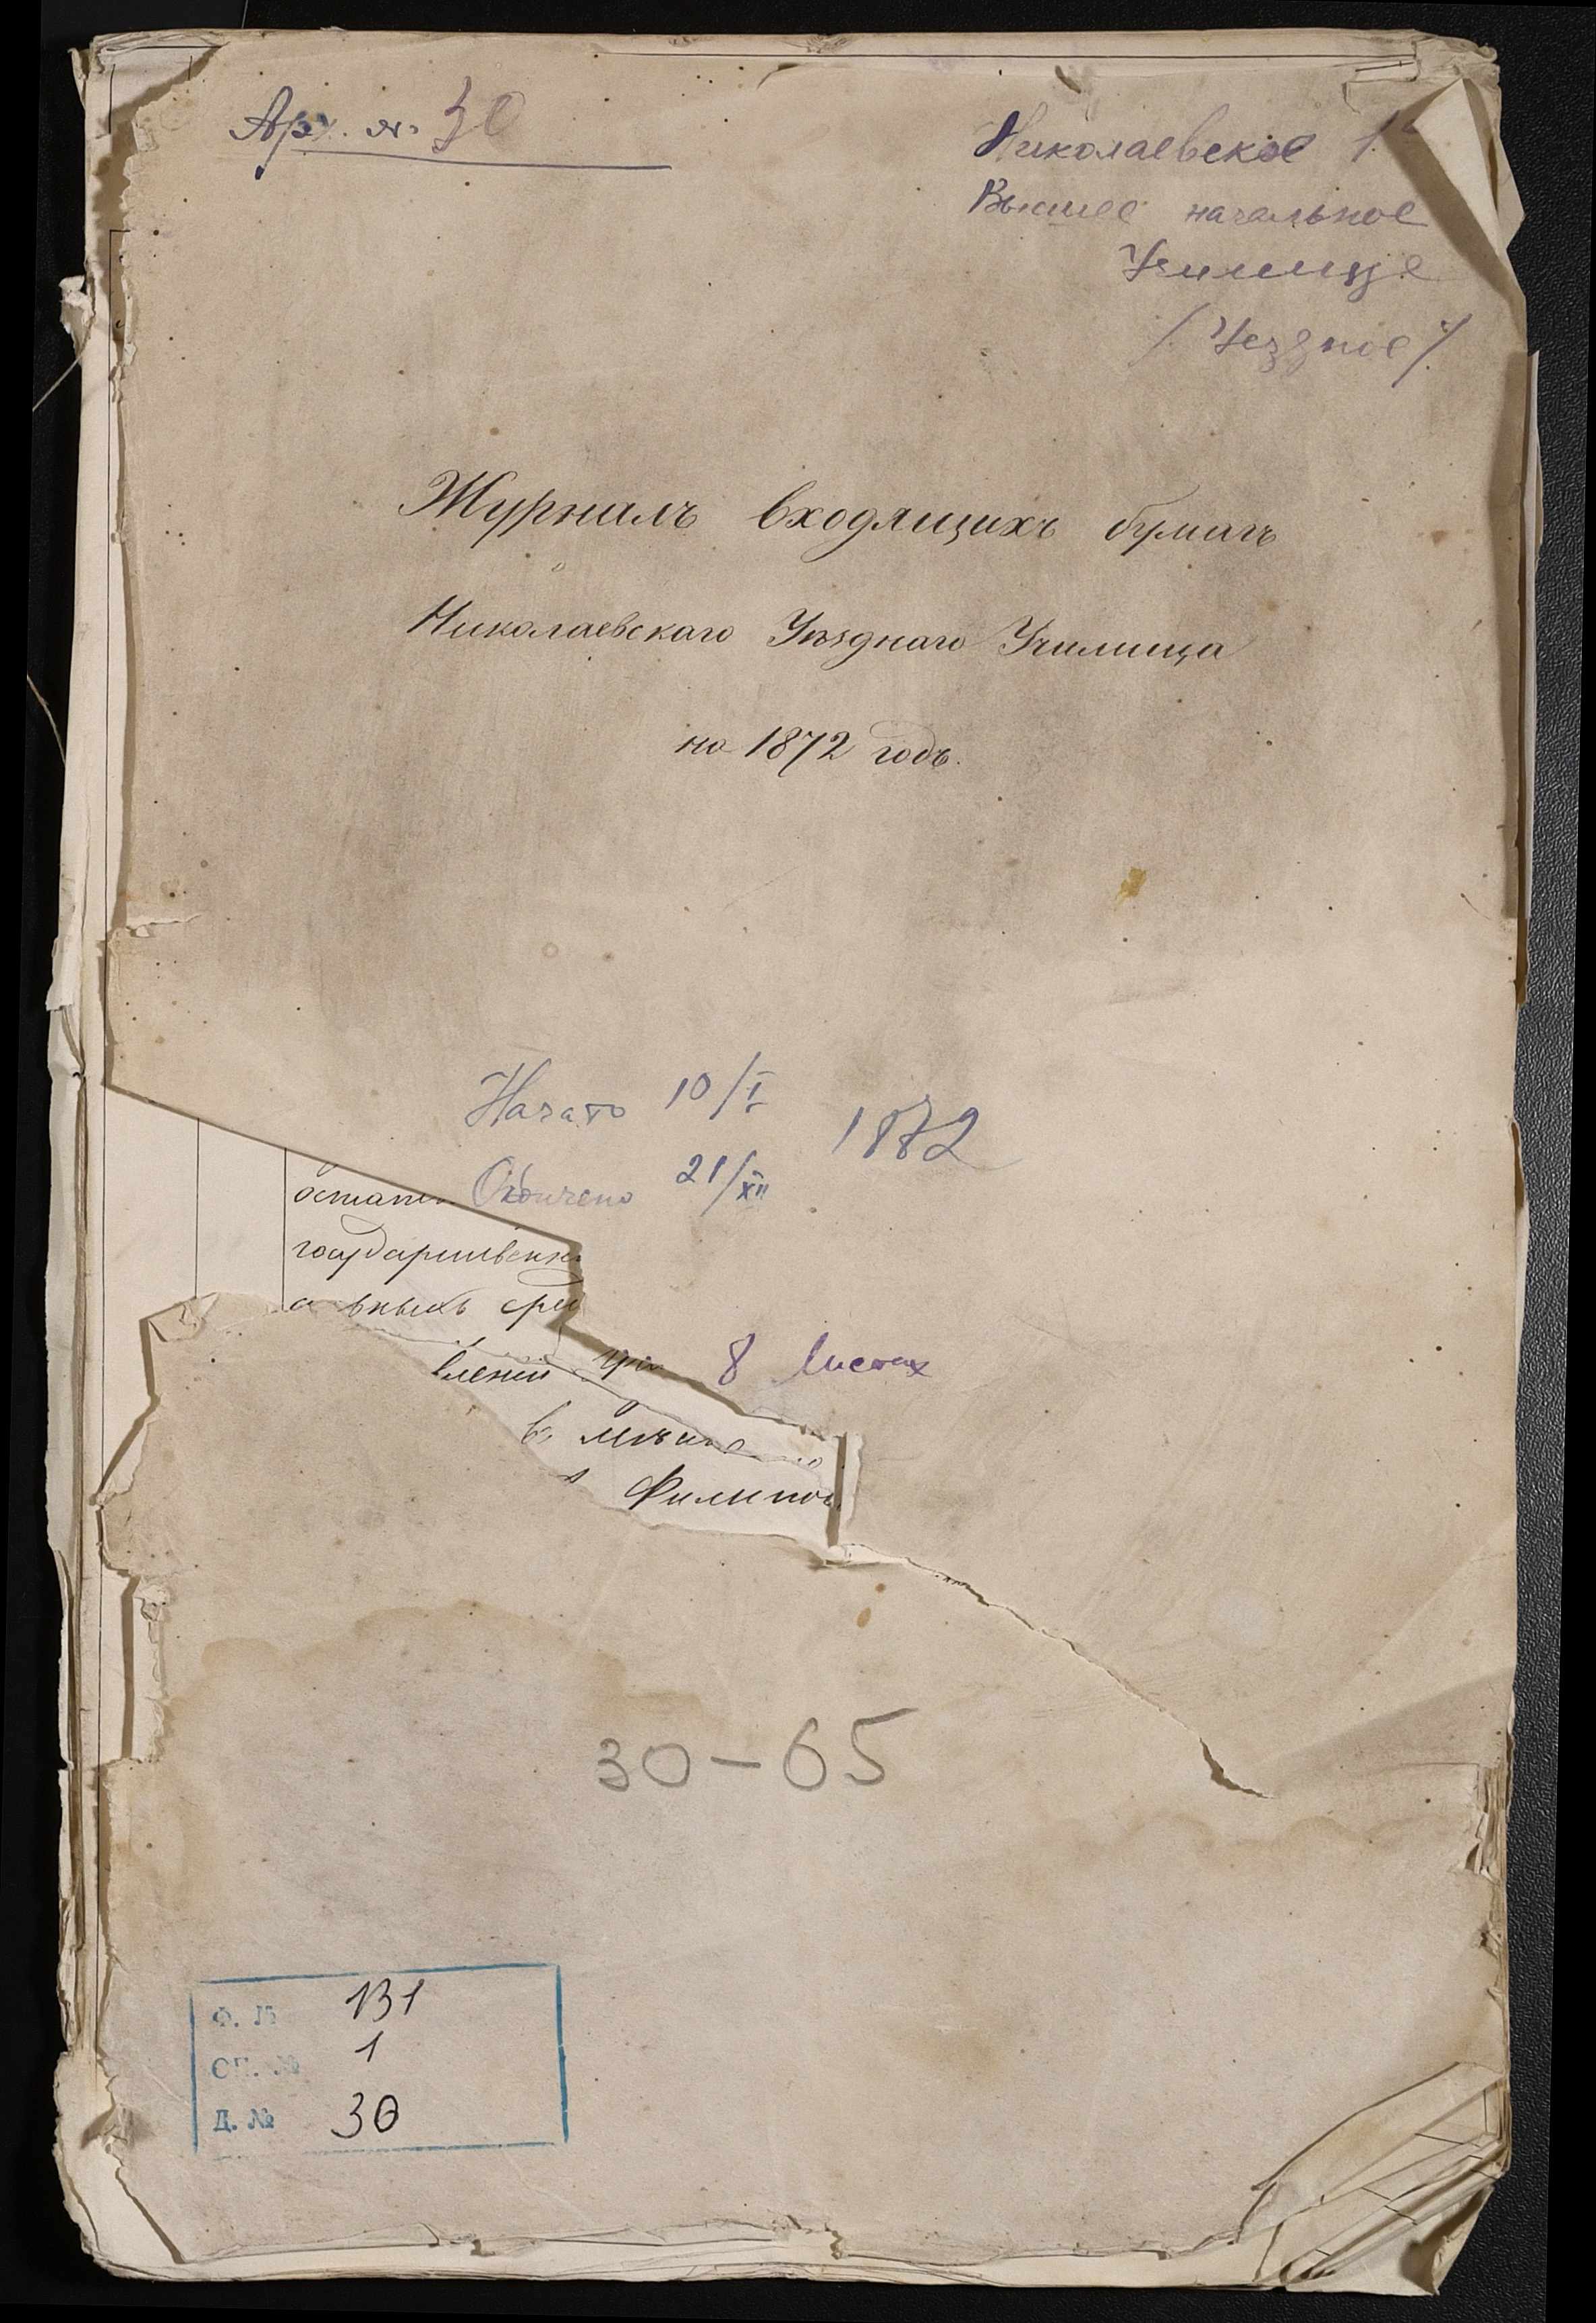 Арх. № 30
Николаевское 1
Высшее начальное
Училище
/Уездное/
Журналъ входящихъ бумагъ
Николаевскаго Уѣзднаго Училища
на 1872 годъ.
Начато 10/I
1872
Окончено 21/XII
государственн
ьныхъ сре
вленіи при
8 листах
въ
Филипов
30-65
Ф. № 131
ОП. № 1
Д. № 30